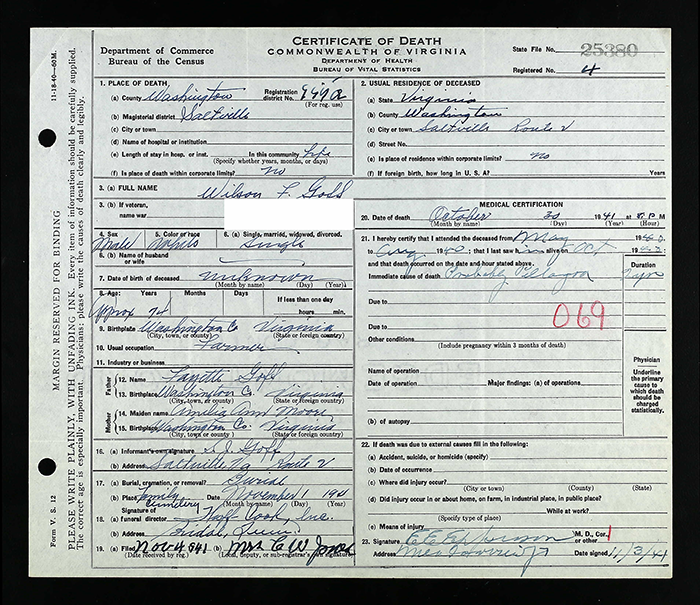 CERTIFICATE OF DEATH
COMMONWEALTH OF VIRGINIA
DEPARTMENT OF HEALTH
BUREAU OF VITAL STATISTICS
Department of Commerce
Bureau of the Census
State File No. 25380
Registered No. 4
11-18-40—60M.
MARGIN RESERVED FOR BINDING
PLEASE WRITE PLAINLY, WITH UNFADING INK. Every item of information should be carefully supplied.
The correct age is especially important. Physicians: please write the causes of death clearly and legibly.
Form V. S. 12
1. PLACE OF DEATH
(a) County Washington Registration district No.
(For reg. use)
(b) Magisterial district Saltville
(c) City or town
(d) Name of hospital or institution
(e) Length of stay in hosp. or inst. In this community life
(Specify whether years, months, or days)
(f) Is place of death within corporate limits? no
2. USUAL RESIDENCE OF DECEASED
(a) State Virginia
(b) County Washington
(c) City or town Saltville Route 2
(d) Street No.
(e) Is place of residence within corporate limits? no
(f) If foreign birth, how long in U. S. A.? Years
3. (a) FULL NAME Wilson F. Goff
3. (b) If veteran, name war
4. Sex Male 5. Color or race White 6. (a) Single, married, widowed, divorced. Single
6. (b) Name of husband or wife
7. Date of deceased unknown
(Month by name) (Day) (Year)
8. Age: Years Months Days If less than one day
Approx 74 hours min.
9. Birthplace Washington Co Virginia
(City, town, or county) (State or foreign country)
10. Usual occupation Farmer
11. Industry or business
Father
12. Name Fayette Goff
13. Birthplace Washington Co. Virginia
(City, town, or county) (State or foreign country)
Mother
14. Maiden name Ann Moore
15. Birthplace Washington Co. Virginia
(City, town or county) (State or foreign country)
16. (a) Informant's own signature Goff
(b) Address Saltville, Va Route 2
17. (a) Burial, cremation, or removal? Burial
(b) Place Family Cemetery Date November 1 1941
18. (a) Signature of funeral director Cook, Inc.
(b) Address
19. (a) Filed Nov 4 941 (b) Mrs C W Jones
(Date received by reg.) (Local, deputy, or sub-registrar's own signature)
MEDICAL CERTIFICATION
20. Date of death October 30 1941 at P M
(Month by name) (Day) (Year) (Hour)
21. I hereby certify that I attended the deceased from May
to Aug that I last saw alive on Oct
and that death occurred on the date and hour stated above.
Duration
Immediate cause of death Probably Pellagra
Due to
069
Due to
Other conditions
(Include pregnancy within 3 months of death)
Name of operation
Date of operation Major findings: (a) of operations
(b) of autopsy
Physician
Underline the primary cause to which death should be charged statistically.
22. If death was due to external causes fill in the following:
(a) Accident, suicide, or homicide (specify)
(b) Date of occurrence
(c) Where did injury occur?
(City or town) (County) (State)
(d) Did injury occur in or about home, on farm, in industrial place, in public place?
While at work?
(Specify type of place)
(e) Means of injury
23. Signature M. D., Cor. or other 1
Address Date signed 11/3/41